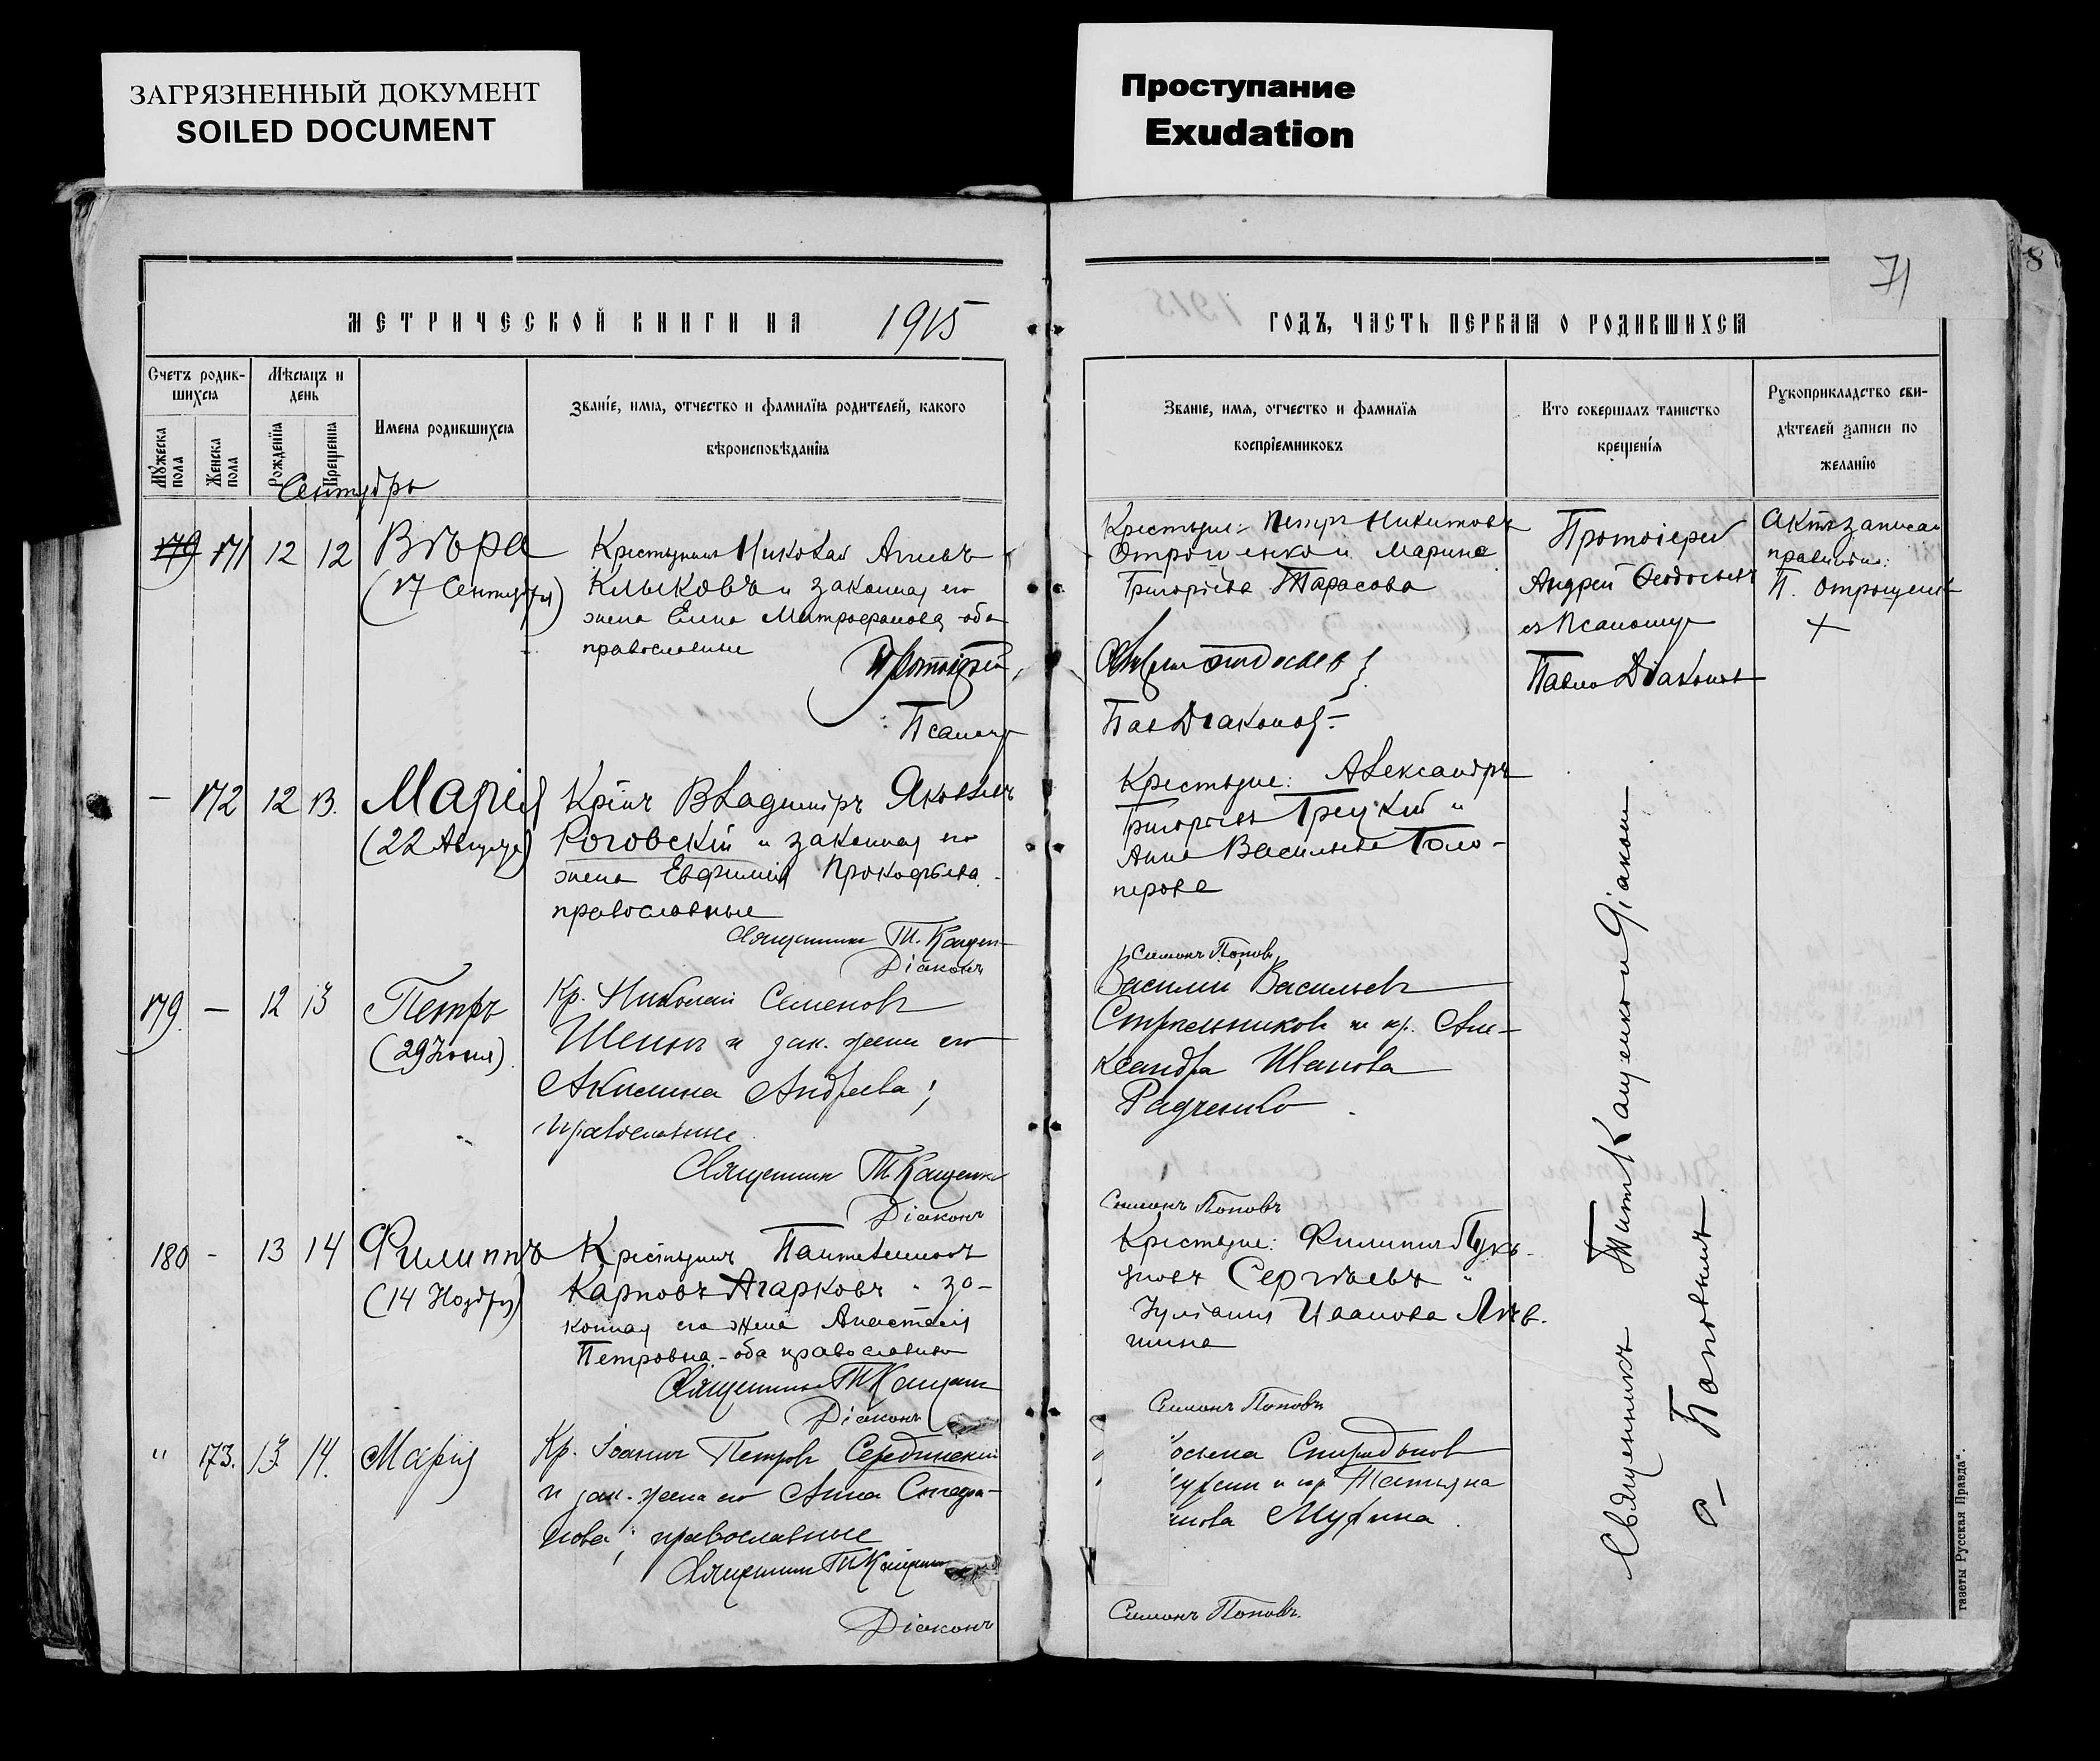 ЗАГРЯЗНЕННЫЙ ДОКУМЕНТ
SOILED DOCUMENT
Проступание
Exudation
71
8
МЕТРИЧЕСКОЙ КНИГИ НА 1915
ГОДЪ, ЧАСТЬ ПЕРВАЯ О РОДИВШИХСЯ
Счетъ родив-
шихся
Мужеска пола
Женска пола
Мѣсяцъ и
день
Рожденїя
Крещенїя
Имена родившихся
Званїе, имя, отчество и фамилїя родителей, какого
вѣроисповѣданїя
Званїе, имя, отчество и фамилїя
воспрїемниковъ
Кто совершалъ таинство
крещенїя
Рукоприкладство сви-
дѣтелей записи по
желанїю
Сентябрь
179 171 12 12 Вѣра
(17 Сентября)
Крестьянинъ Николай
Клыковъ и законная его
жена Елена Митрофанова оба
православные
Протоіерей
Псаломщ
Крестьяне: Петръ Никитовъ
Отрощенко и Марина
Григорьева Тарасова
Андрей
Пав Діаконов
Протоіерей
Андрей Ѳеодосьевъ
съ Псаломщ
Павло Діаконов
Актъ записан
правильно:
П. Отрощенк
— 172 12 13. Марія
(22 Августа)
Кр҃інъ Владиміръ Яковлевъ
Роговскій и законная его
жена Евфимія Прокофьева
православные
Священникъ Т. Кащен
Діаконъ
Крестьяне: Александръ
Григорьевъ Грецкій и
Анна Васильева Голо-
перова
Симонъ Поповъ
179. — 12 13 Петръ
(29 Іюня)
Кр. Николай Семеновъ
Шеинъ и зак. жена его
Акилина Андреева;
православные
Священник Т Кащенко
Діаконъ
Василій Васильевъ
Стрельниковъ и кр. Але-
ксандра Иванова
Радченко
Симонъ Поповъ
180 - 13 14 Филиппъ
(14 Ноября)
Крестьянинъ Пантелеймонъ
Карповъ Агарковъ и за-
конная его жена Анастасія
Петровна - оба православные
Священникъ Т Кащен
Діаконъ
Крестьяне: Филиппъ
Сергѣевъ и
Іуліанія Иванова
шина
Симонъ Поповъ
" 173. 13. 14. Марія
Кр. Іоаннъ Петровъ Серединскій
и зак. жена его Анна Спиридо-
нова; православные
Священникъ Т Кащен
Діаконъ
Спиридоновъ
и кр Татьяна
нова Мухина.
Симонъ Поповъ.
Священникъ Титъ Кащенко и Діаконъ
С. Поповымъ
газеты Русская Правда“.